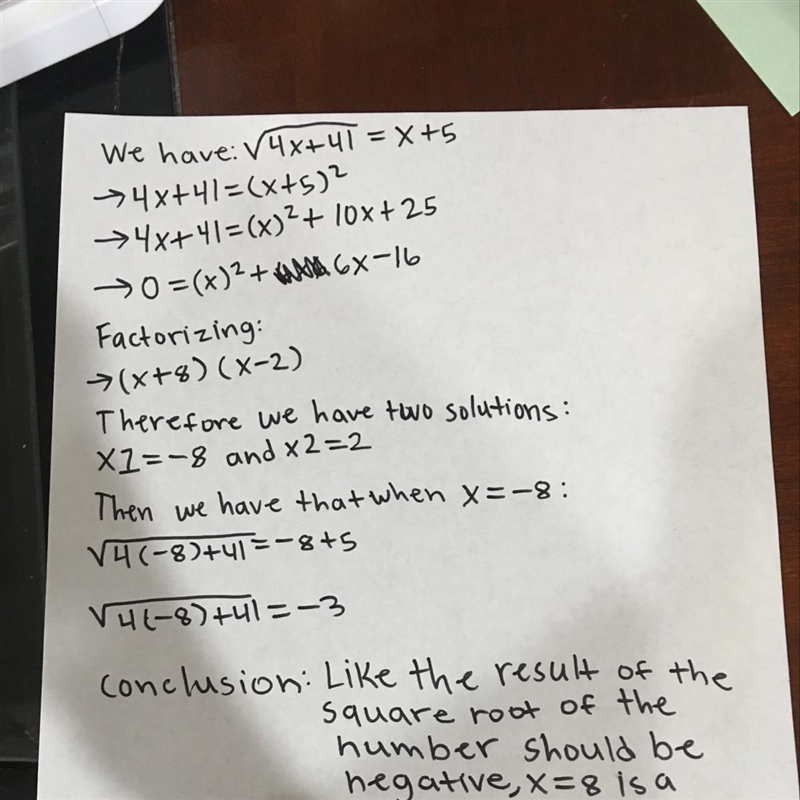 We have: √4x+41 = x+5
→ 4x+41=(x+5)²
→ 4x+41=(x)²+10x+25
→ 0 =(x)²+ 6x-16
Factorizing:
→ (x+8) (x-2)
Therefore we have two solutions:
x1=-8 and x2=2
Then we have that when x=-8:
√4(-8)+41=-8+5
√4(-8)+41=-3
Conclusion: Like the result of the
square root of the
number should be
negative, x=8 is a